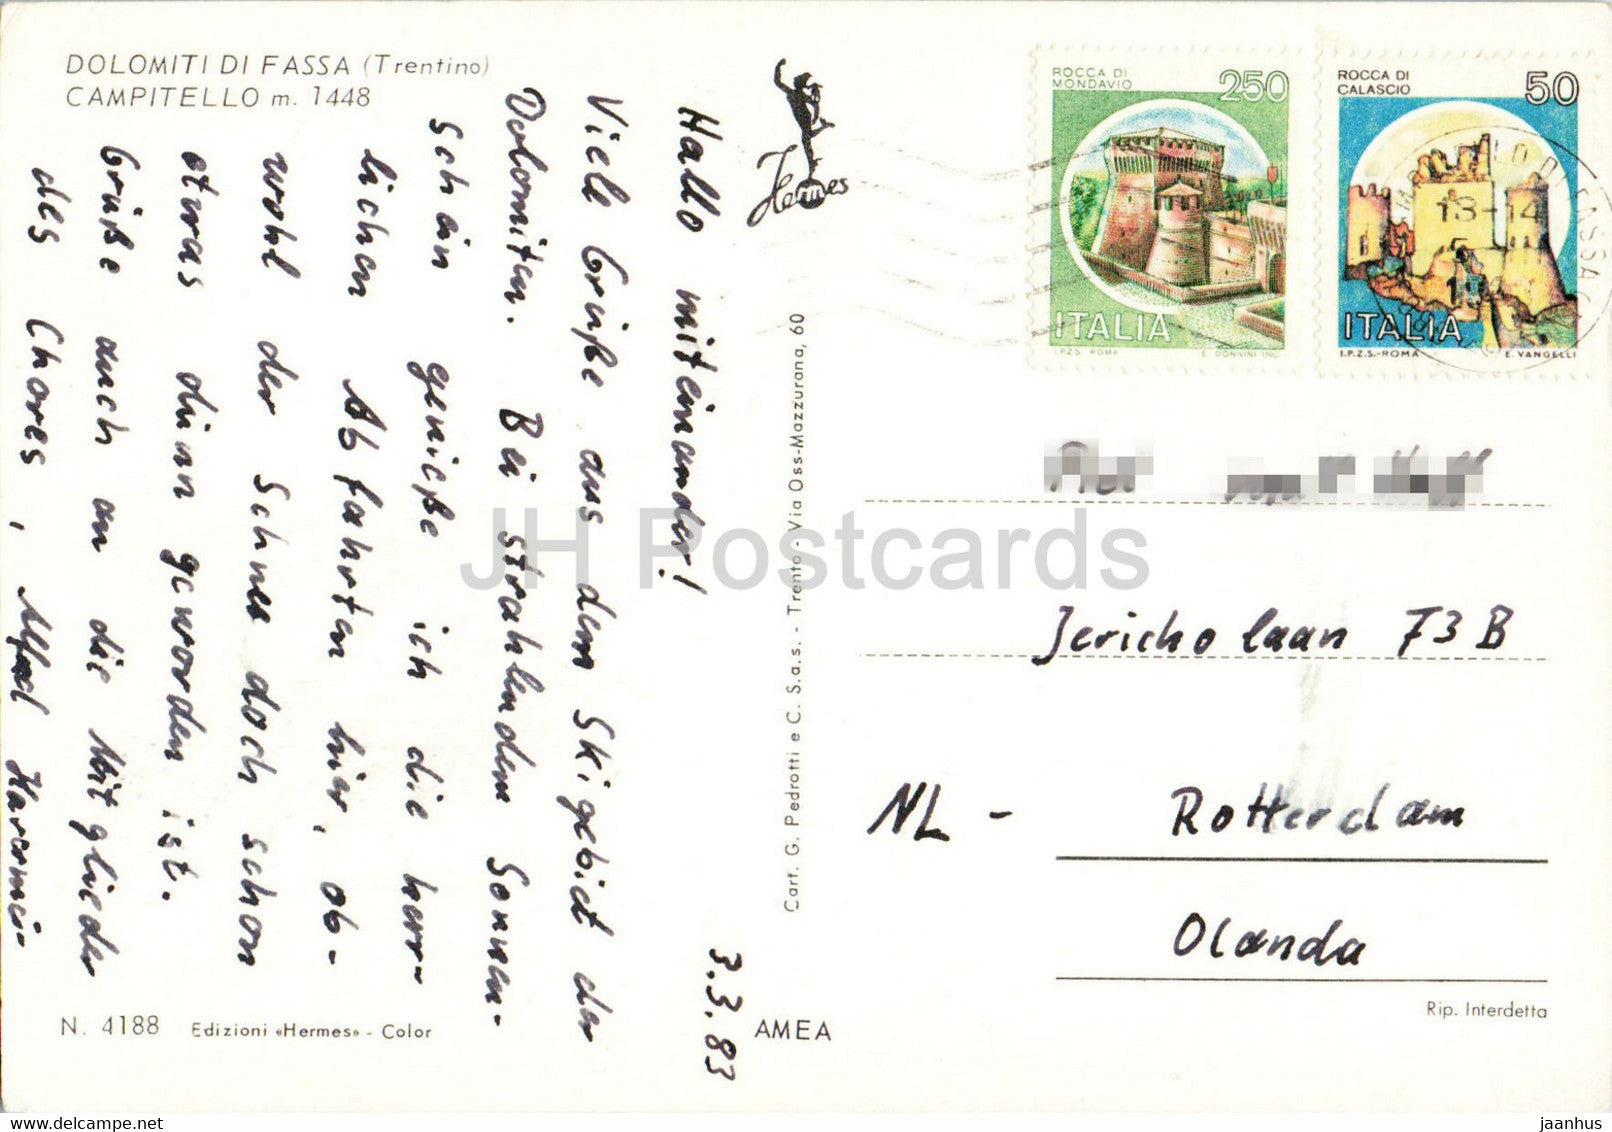 DOLOMITI DI FASSA (Trentino)
CAMPITELLO m. 1448
Hermes
3.3.83
Hallo miteinander!
Viele Grüße aus dem Skigebiet der
Dolomiten. Bei strahlendem Sonnen-
schein genieße ich die herr-
lichen Abfahrten hier, ob-
wohl der Schnee doch schon
etwas dünn geworden ist.
Grüße auch an die Mitglieder
des Chores, Alfred
Cart. G. Pedrotti e C. S.a.s. - Trento - Via Oss-Mazzurana, 60
ROCCA DI
MONDAVIO
250
ITALIA
I.P.Z.S. ROMA E. DONNINI INC.
ROCCA DI
CALASCIO
50
ITALIA
I.P.Z.S.-ROMA E. VANGELLI
13-14
Jericholaan 73B
NL - Rotterdam
Olanda
Rip. Interdetta
N. 4188 Edizioni «Hermes» - Color
AMEA
JH Postcards
jaanhus